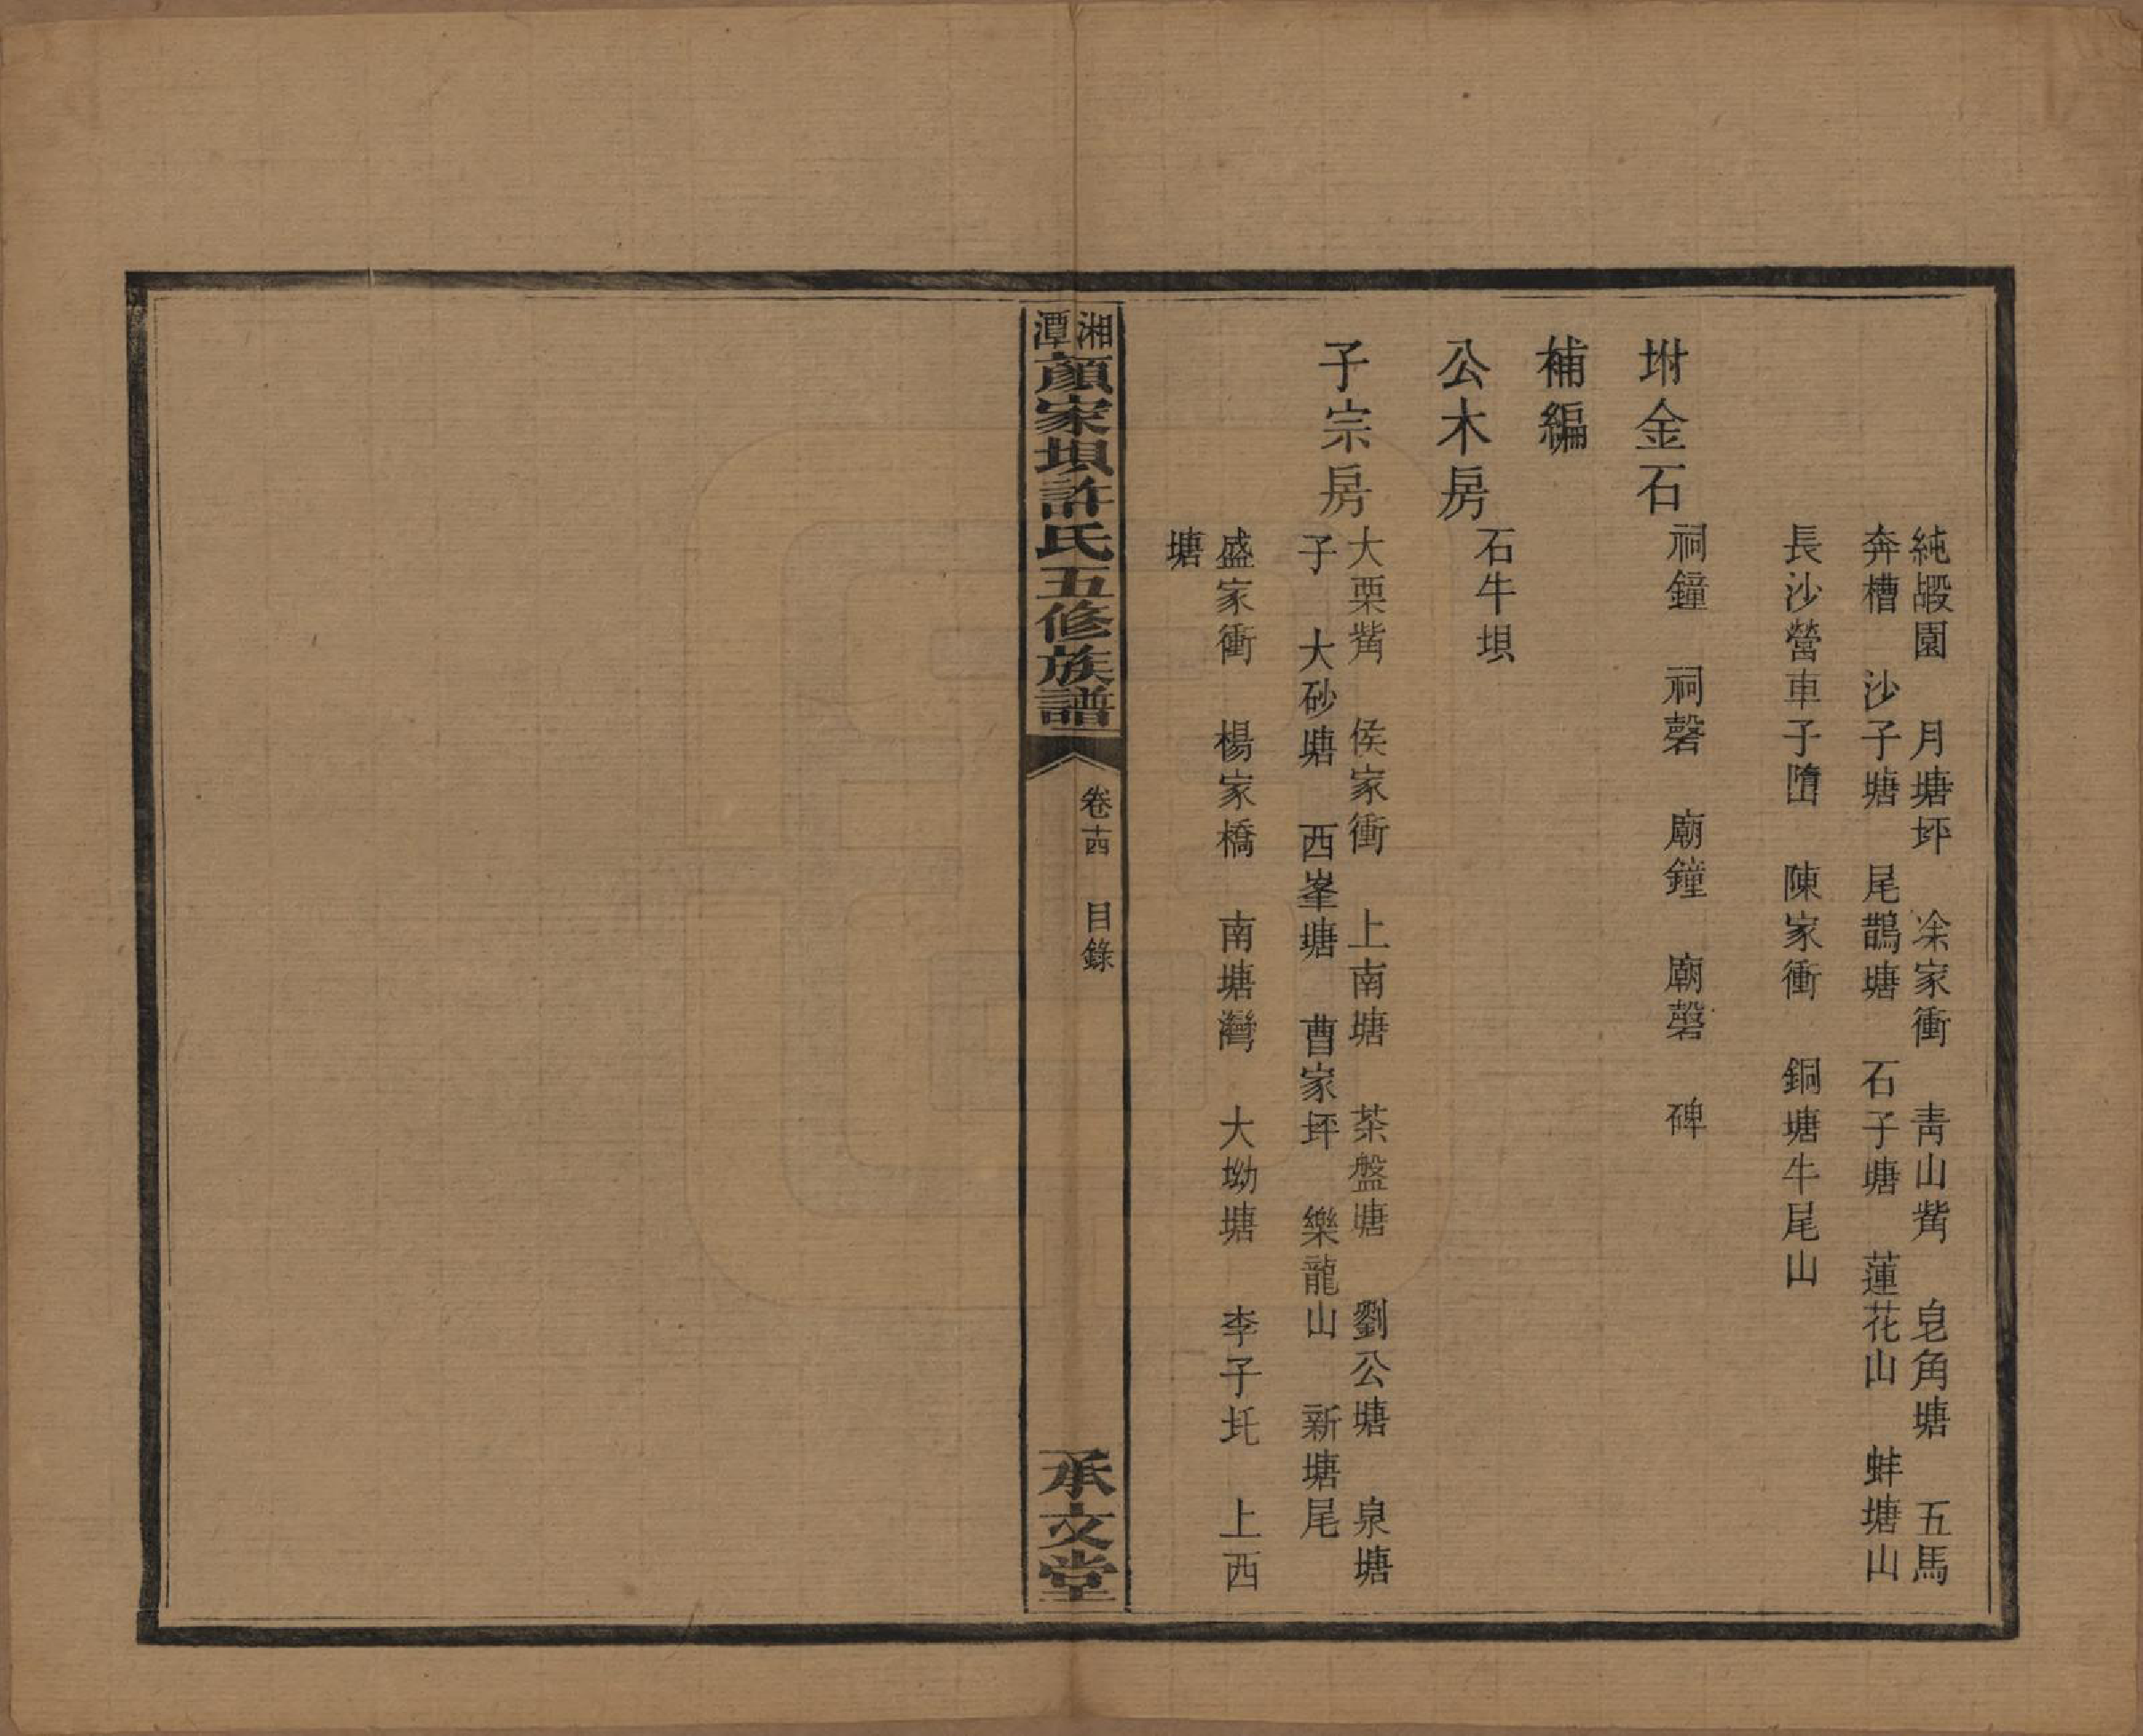 純嘏園　月塘坪　凃家衝　靑山觜　皂角塘　五馬
奔槽　沙子塘　尾鵲塘　石子塘　蓮花山　蚌塘山
長沙營車子墮　陳家衝　銅塘牛尾山
坿金石
祠鐘　祠磬　廟鐘　廟磬　碑
補編
公木房
石牛垻
子宗房
大栗觜　侯家衝　上南塘　茶盤塘　劉公塘　泉塘
子　大砂塘　西峯塘　曹家坪　樂龍山　新塘尾
盛家衝　楊家橋　南塘灣　大坳塘　李子圫　上西
塘
湘潭顏家垻許氏五修族譜
卷十四　目錄
承文堂